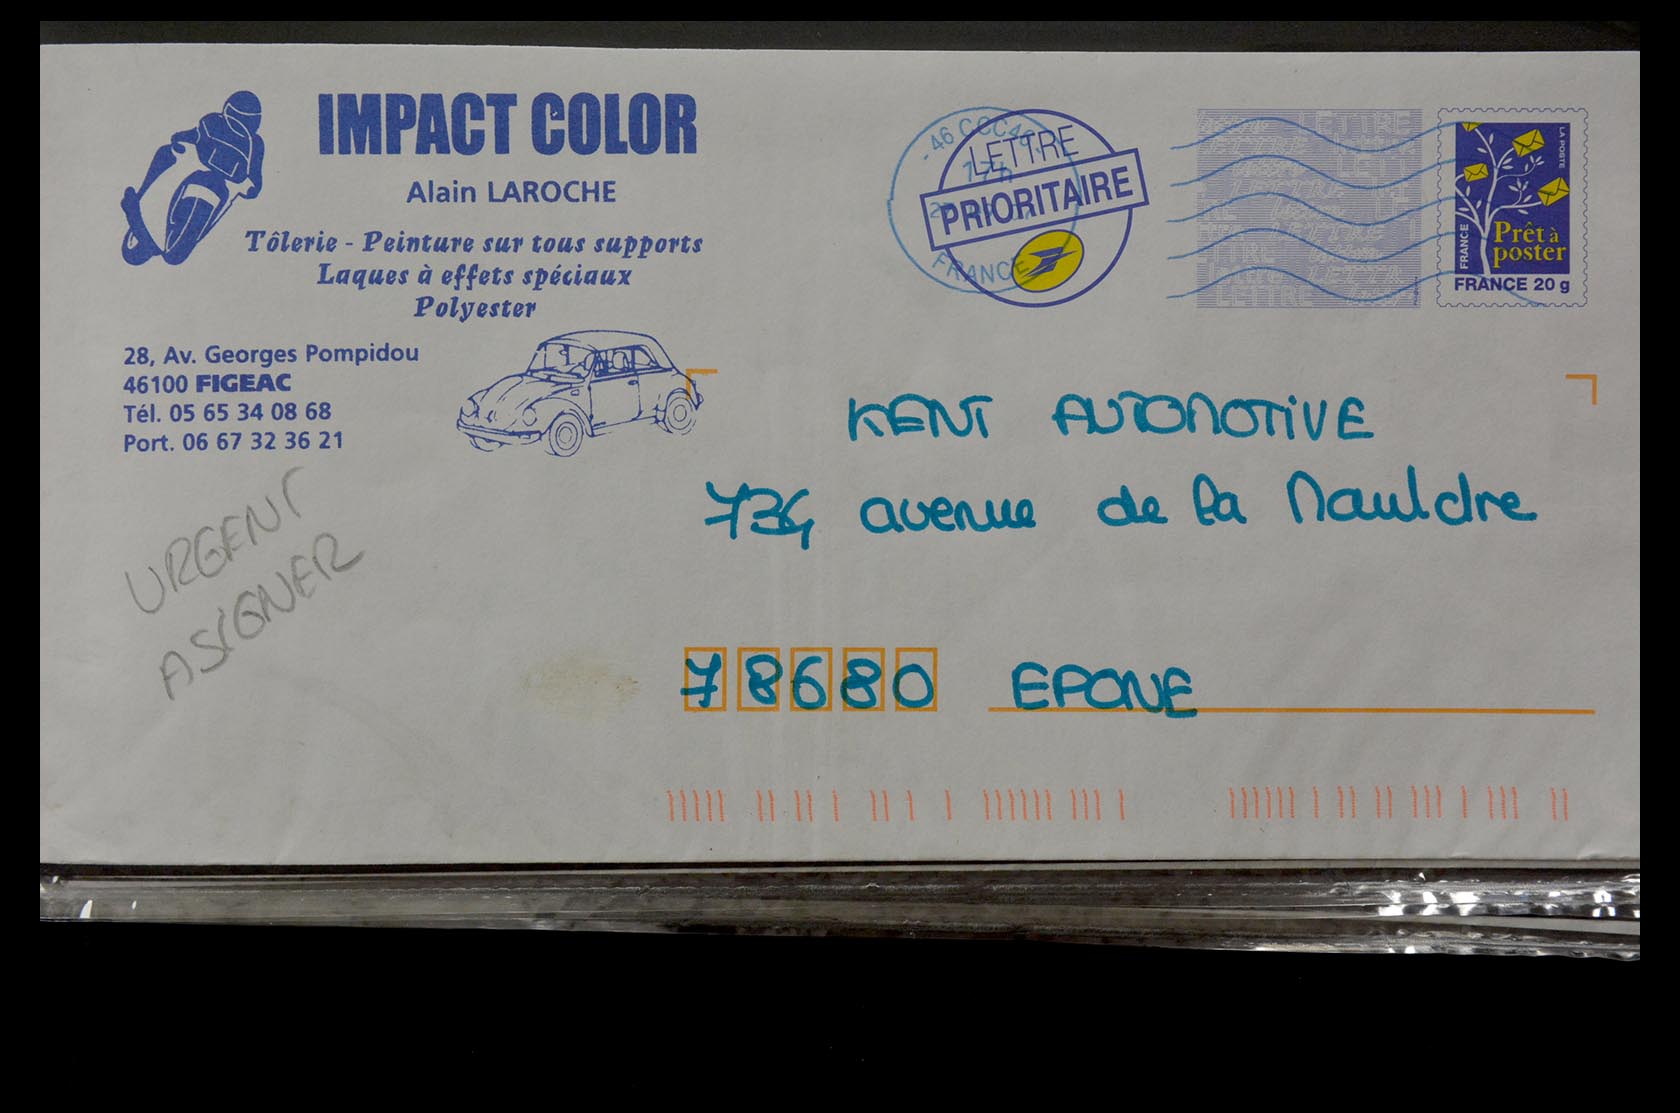 IMPACT COLOR
Alain LAROCHE
Tôlerie - Peinture sur tous supports
Laques à effets spéciaux
Polyester
28, Av. Georges Pompidou
46100 FIGEAC
Tél. 05 65 34 08 68
Port. 06 67 32 36 21
URGENT
ASIGNER
LETTRE
PRIORITAIRE
FRANCE
LETTRE
LA POSTE
FRANCE
Prêt à
poster
FRANCE 20 g
KENT AUTOMOTIVE
734 avenue de la Mauldre
78680 EPONE